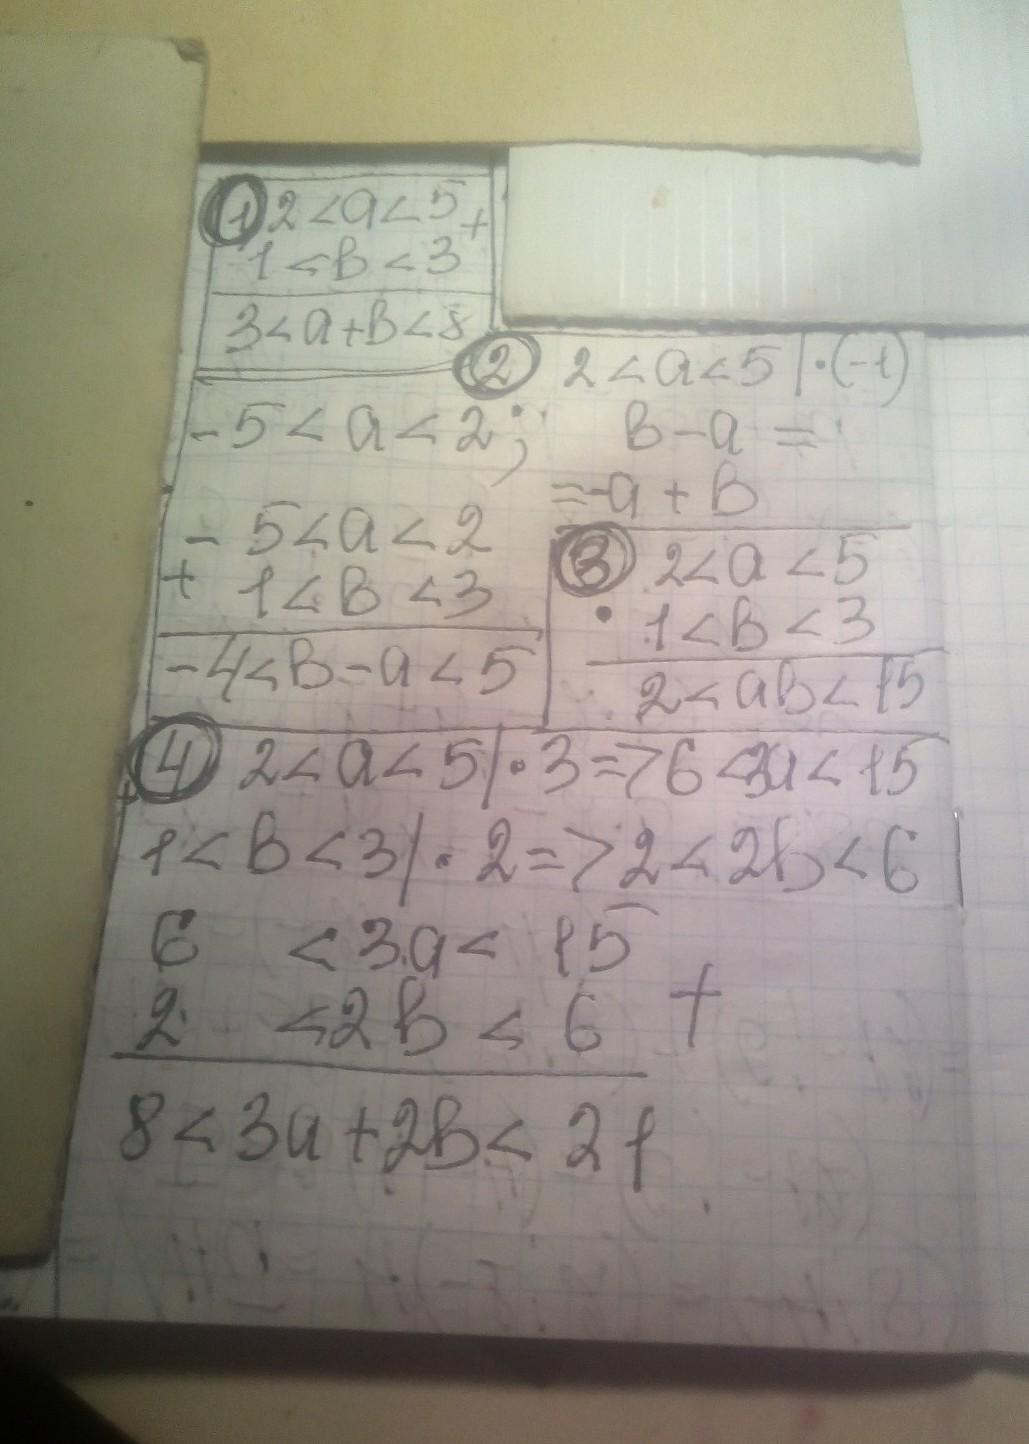 ① 2 < a < 5 +
1 < в < 3
3 < a + в < 8
② 2 < a < 5 | · (-1)
- 5 < a < 2 ; в - a =
= -a + в
- 5 < a < 2
+ 1 < в < 3
- 4 < в - a < 5
③ 2 < a < 5
· 1 < в < 3
2 < aв < 15
④ 2 < a < 5 | · 3 => 6 < 3a < 15
1 < в < 3 | · 2 => 2 < 2в < 6
6 < 3a < 15
2 < 2в < 6 +
8 < 3a + 2в < 21